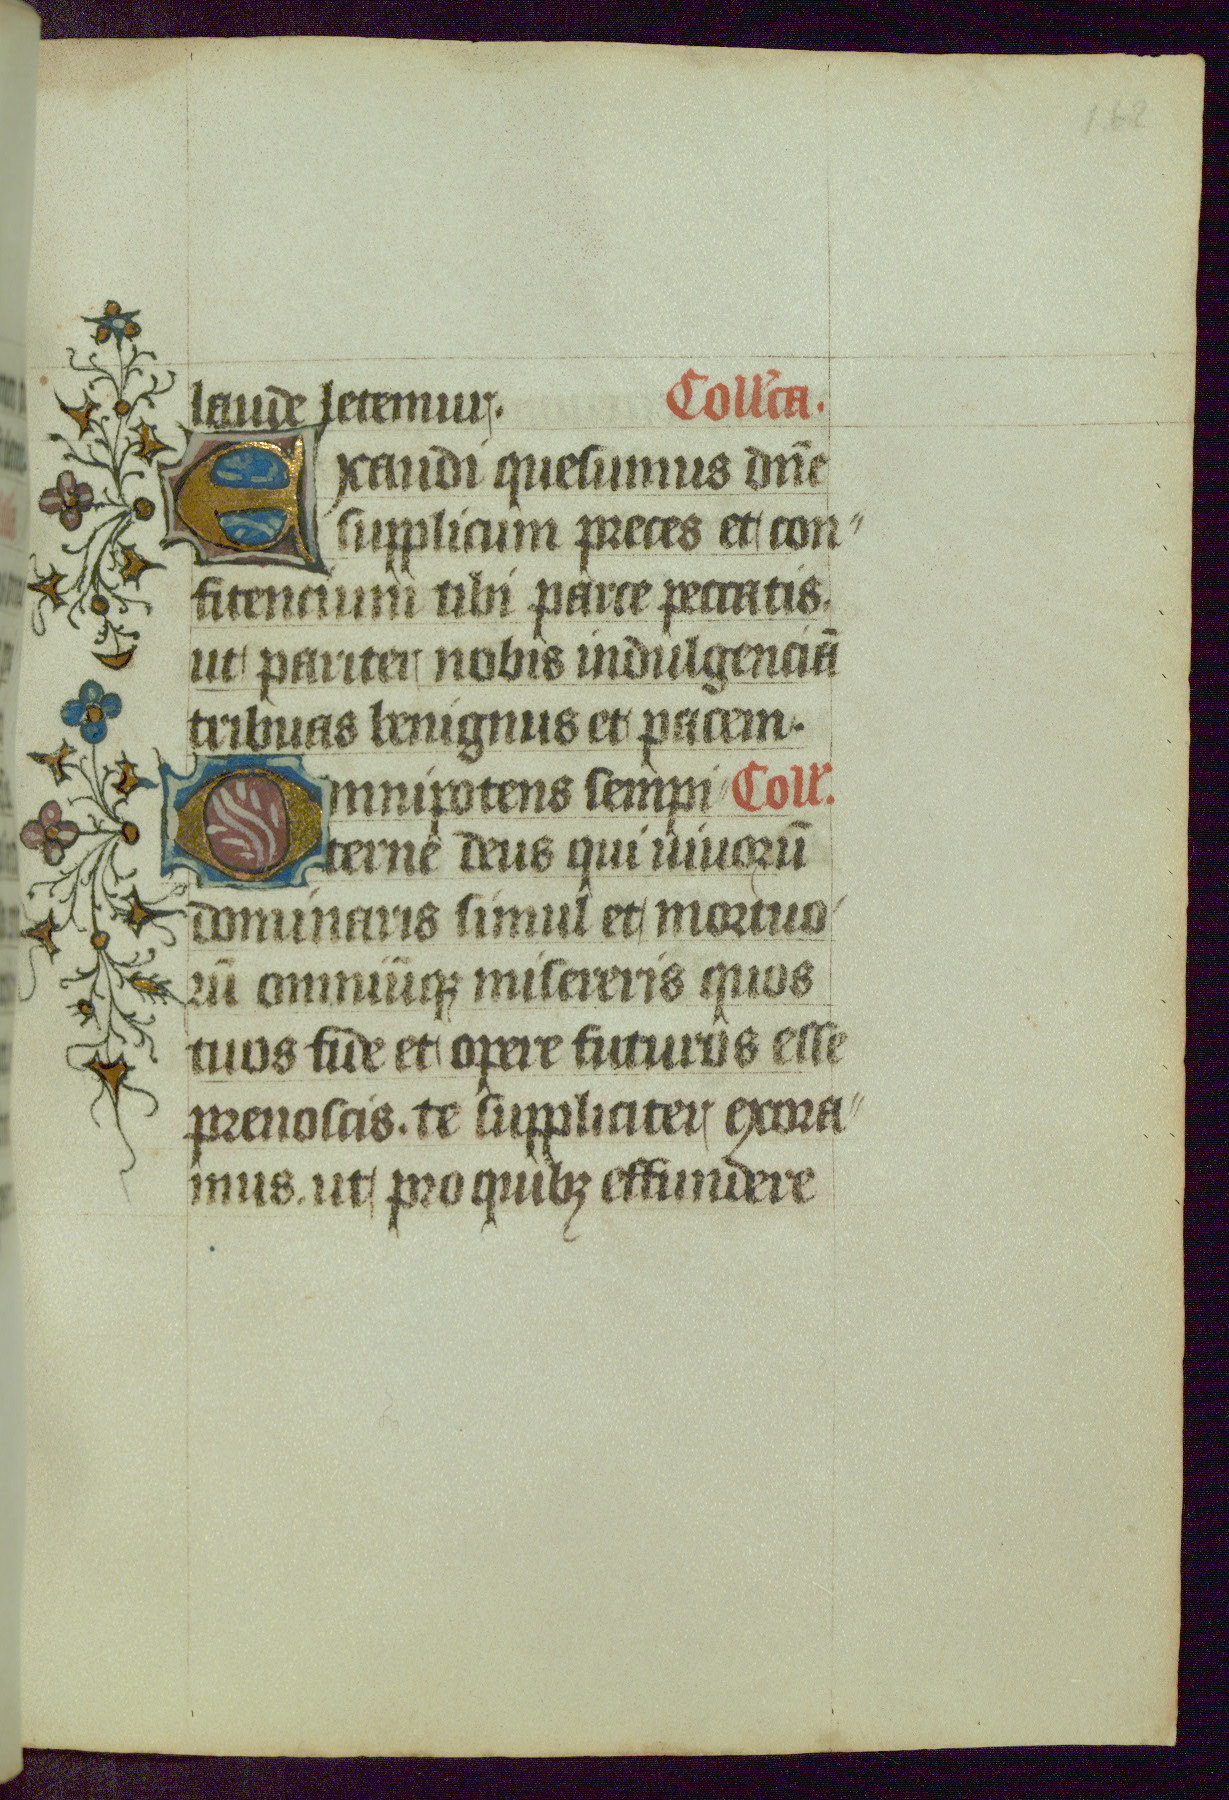 162
laude letemur. Coll'cã.
Exaudi quesumus dñe
supplicum preces et con〃
fitencium tibi parce peccatis.
ut pariter nobis indulgenciã
tribuas benignus et pacem.
Omnipotens sempi Coll'.
terne deus qui uiuorũ
dominaris simul et mortuo
rũ omniũqꝫ misereris quos
tuos fide et opere futuros esse
prenoscis. te suppliciter exora〃
mus. ut pro quibꝫ effundere